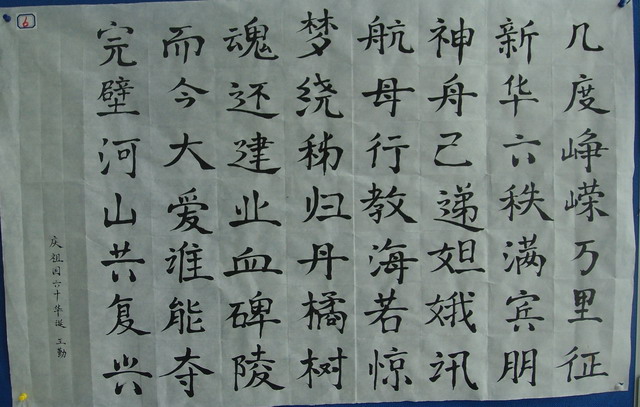 几度峥嵘万里征
新华六秩满宾朋
神舟己递姮娥讯
航母行教海若惊
梦绕秭归丹橘树
魂还建业血碑陵
而今大爱谁能夺
完壁河山共复兴
庆祖国六十华诞 王勤
6